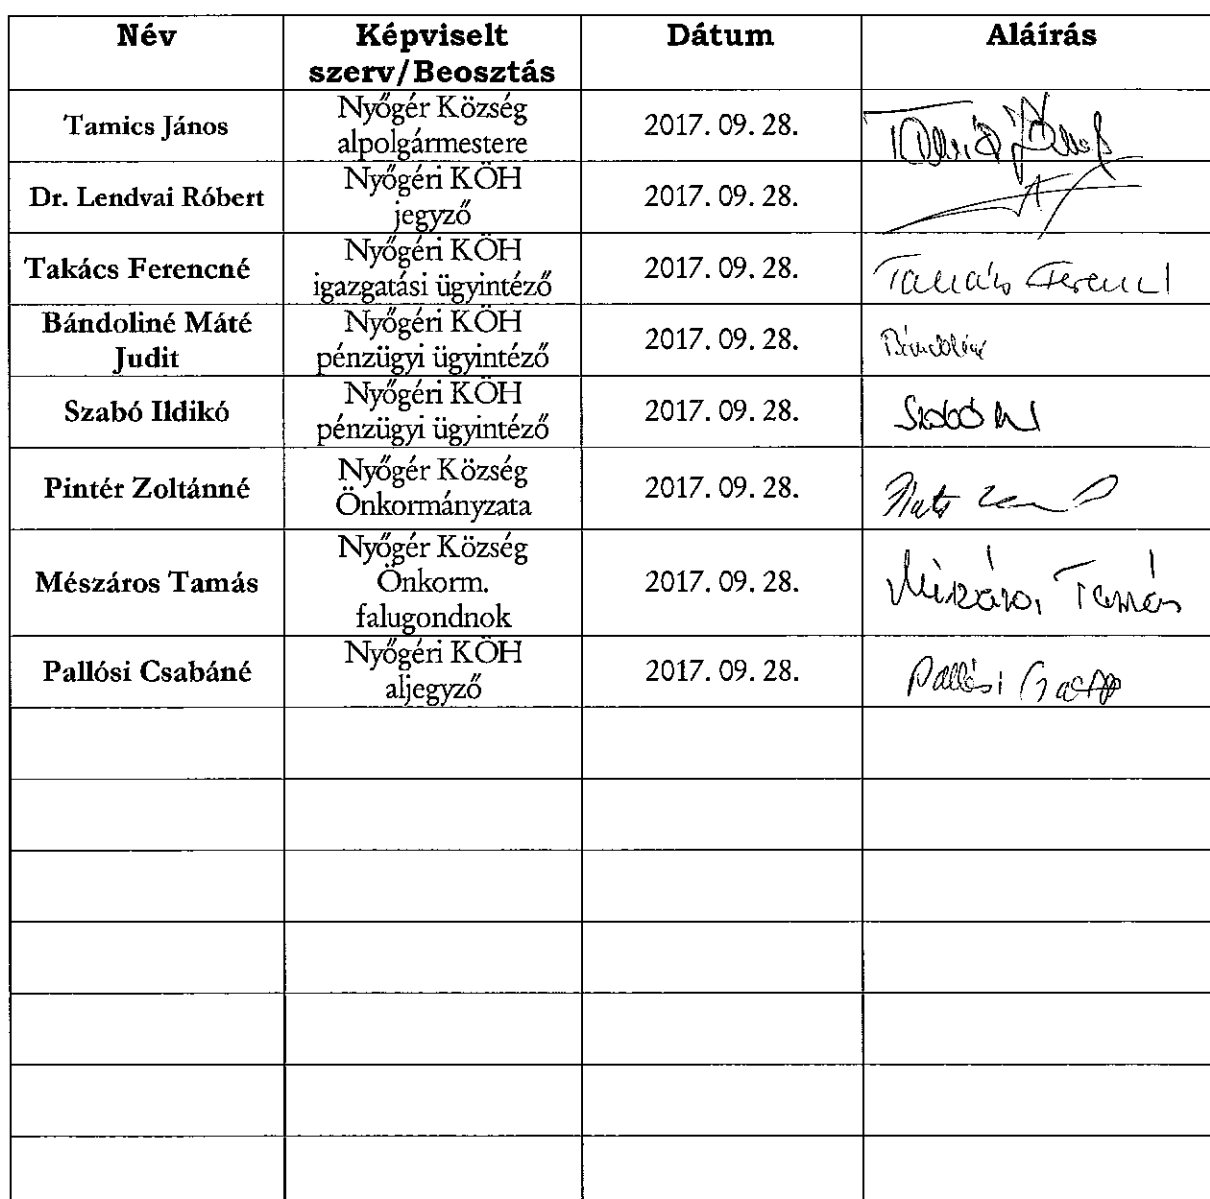 Név Képviselt szerv/Beosztás Dátum Aláírás
Tamics János Nyőgér Község alpolgármestere 2017. 09. 28. Tamics János
Dr. Lendvai Róbert Nyőgéri KÖH jegyző 2017. 09. 28.
Takács Ferencné Nyőgéri KÖH igazgatási ügyintéző 2017. 09. 28. Takács Ferencné
Bándoliné Máté Judit Nyőgéri KÖH pénzügyi ügyintéző 2017. 09. 28.
Szabó Ildikó Nyőgéri KÖH pénzügyi ügyintéző 2017. 09. 28. Szabó
Pintér Zoltánné Nyőgér Község Önkormányzata 2017. 09. 28.
Mészáros Tamás Nyőgér Község Önkorm. falugondnok 2017. 09. 28. Mészáros Tamás
Pallósi Csabáné Nyőgéri KÖH aljegyző 2017. 09. 28. Pallósi